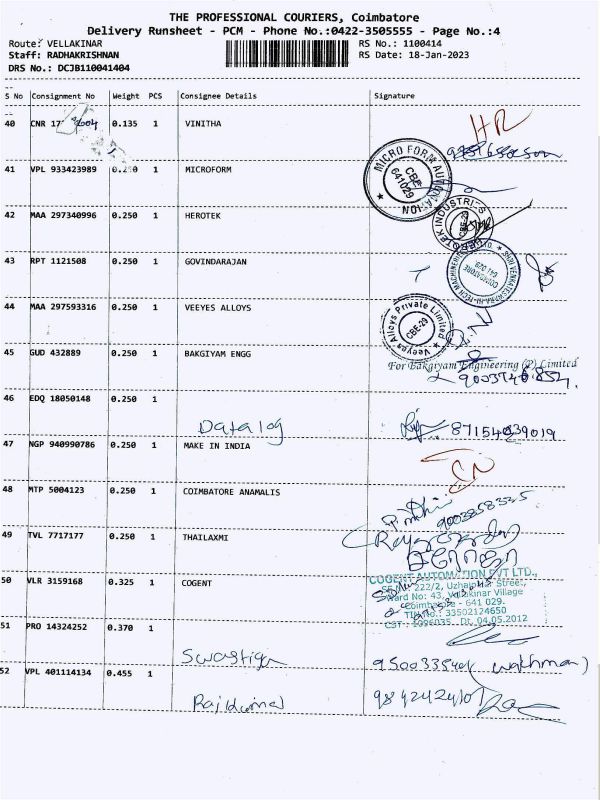 THE PROFESSIONAL COURIERS, Coimbatore
Delivery Runsheet - PCM - Phone No.:0422-3505555 - Page No.:4
Route: VELLAKINAR RS No.: 1100414
Staff: RADHAKRISHNAN RS Date: 18-Jan-2023
DRS No.: DCJB110041404
S No Consignment No Weight PCS Consignee Details Signature
40 CNR 0.135 1 VINITHA HR
41 VPL 933423989 0.250 1 MICROFORM
MICRO FORM AUTOMATION CBE 641029
42 MAA 297340996 0.250 1 HEROTEK
HEROTEK INDUSTRIES CBE-29
43 RPT 1121508 0.250 1 GOVINDARAJAN
SHRI VENKATESWARA HI-TECH MACHINERIES COIMBATORE 641 029
44 MAA 297593316 0.250 1 VEEYES ALLOYS
Veeyes Alloys Private Limited CBE-29
45 GUD 432889 0.250 1 BAKGIYAM ENGG
For Bakgiyam Engineering (P) Limited
46 EDQ 18050148 0.250 1
Datalog 87154039019
47 NGP 940990786 0.250 1 MAKE IN INDIA
48 MTP 5004123 0.250 1 COIMBATORE ANAMALIS
9003858335
49 TVL 7717177 0.250 1 THAILAXMI
சரோஜா
50 VLR 3159168 0.325 1 COGENT
COGENT AUTOMATION PVT LTD.,
222/2, Street,
Ward No: 43, Vellakinar Village
Coimbatore - 641 029.
TIN No.: 33502124650
CST : 1096035 Dt. 04.05.2012
51 PRO 14324252 0.370 1
Swastiga
52 VPL 401114134 0.455 1
Rajkumar